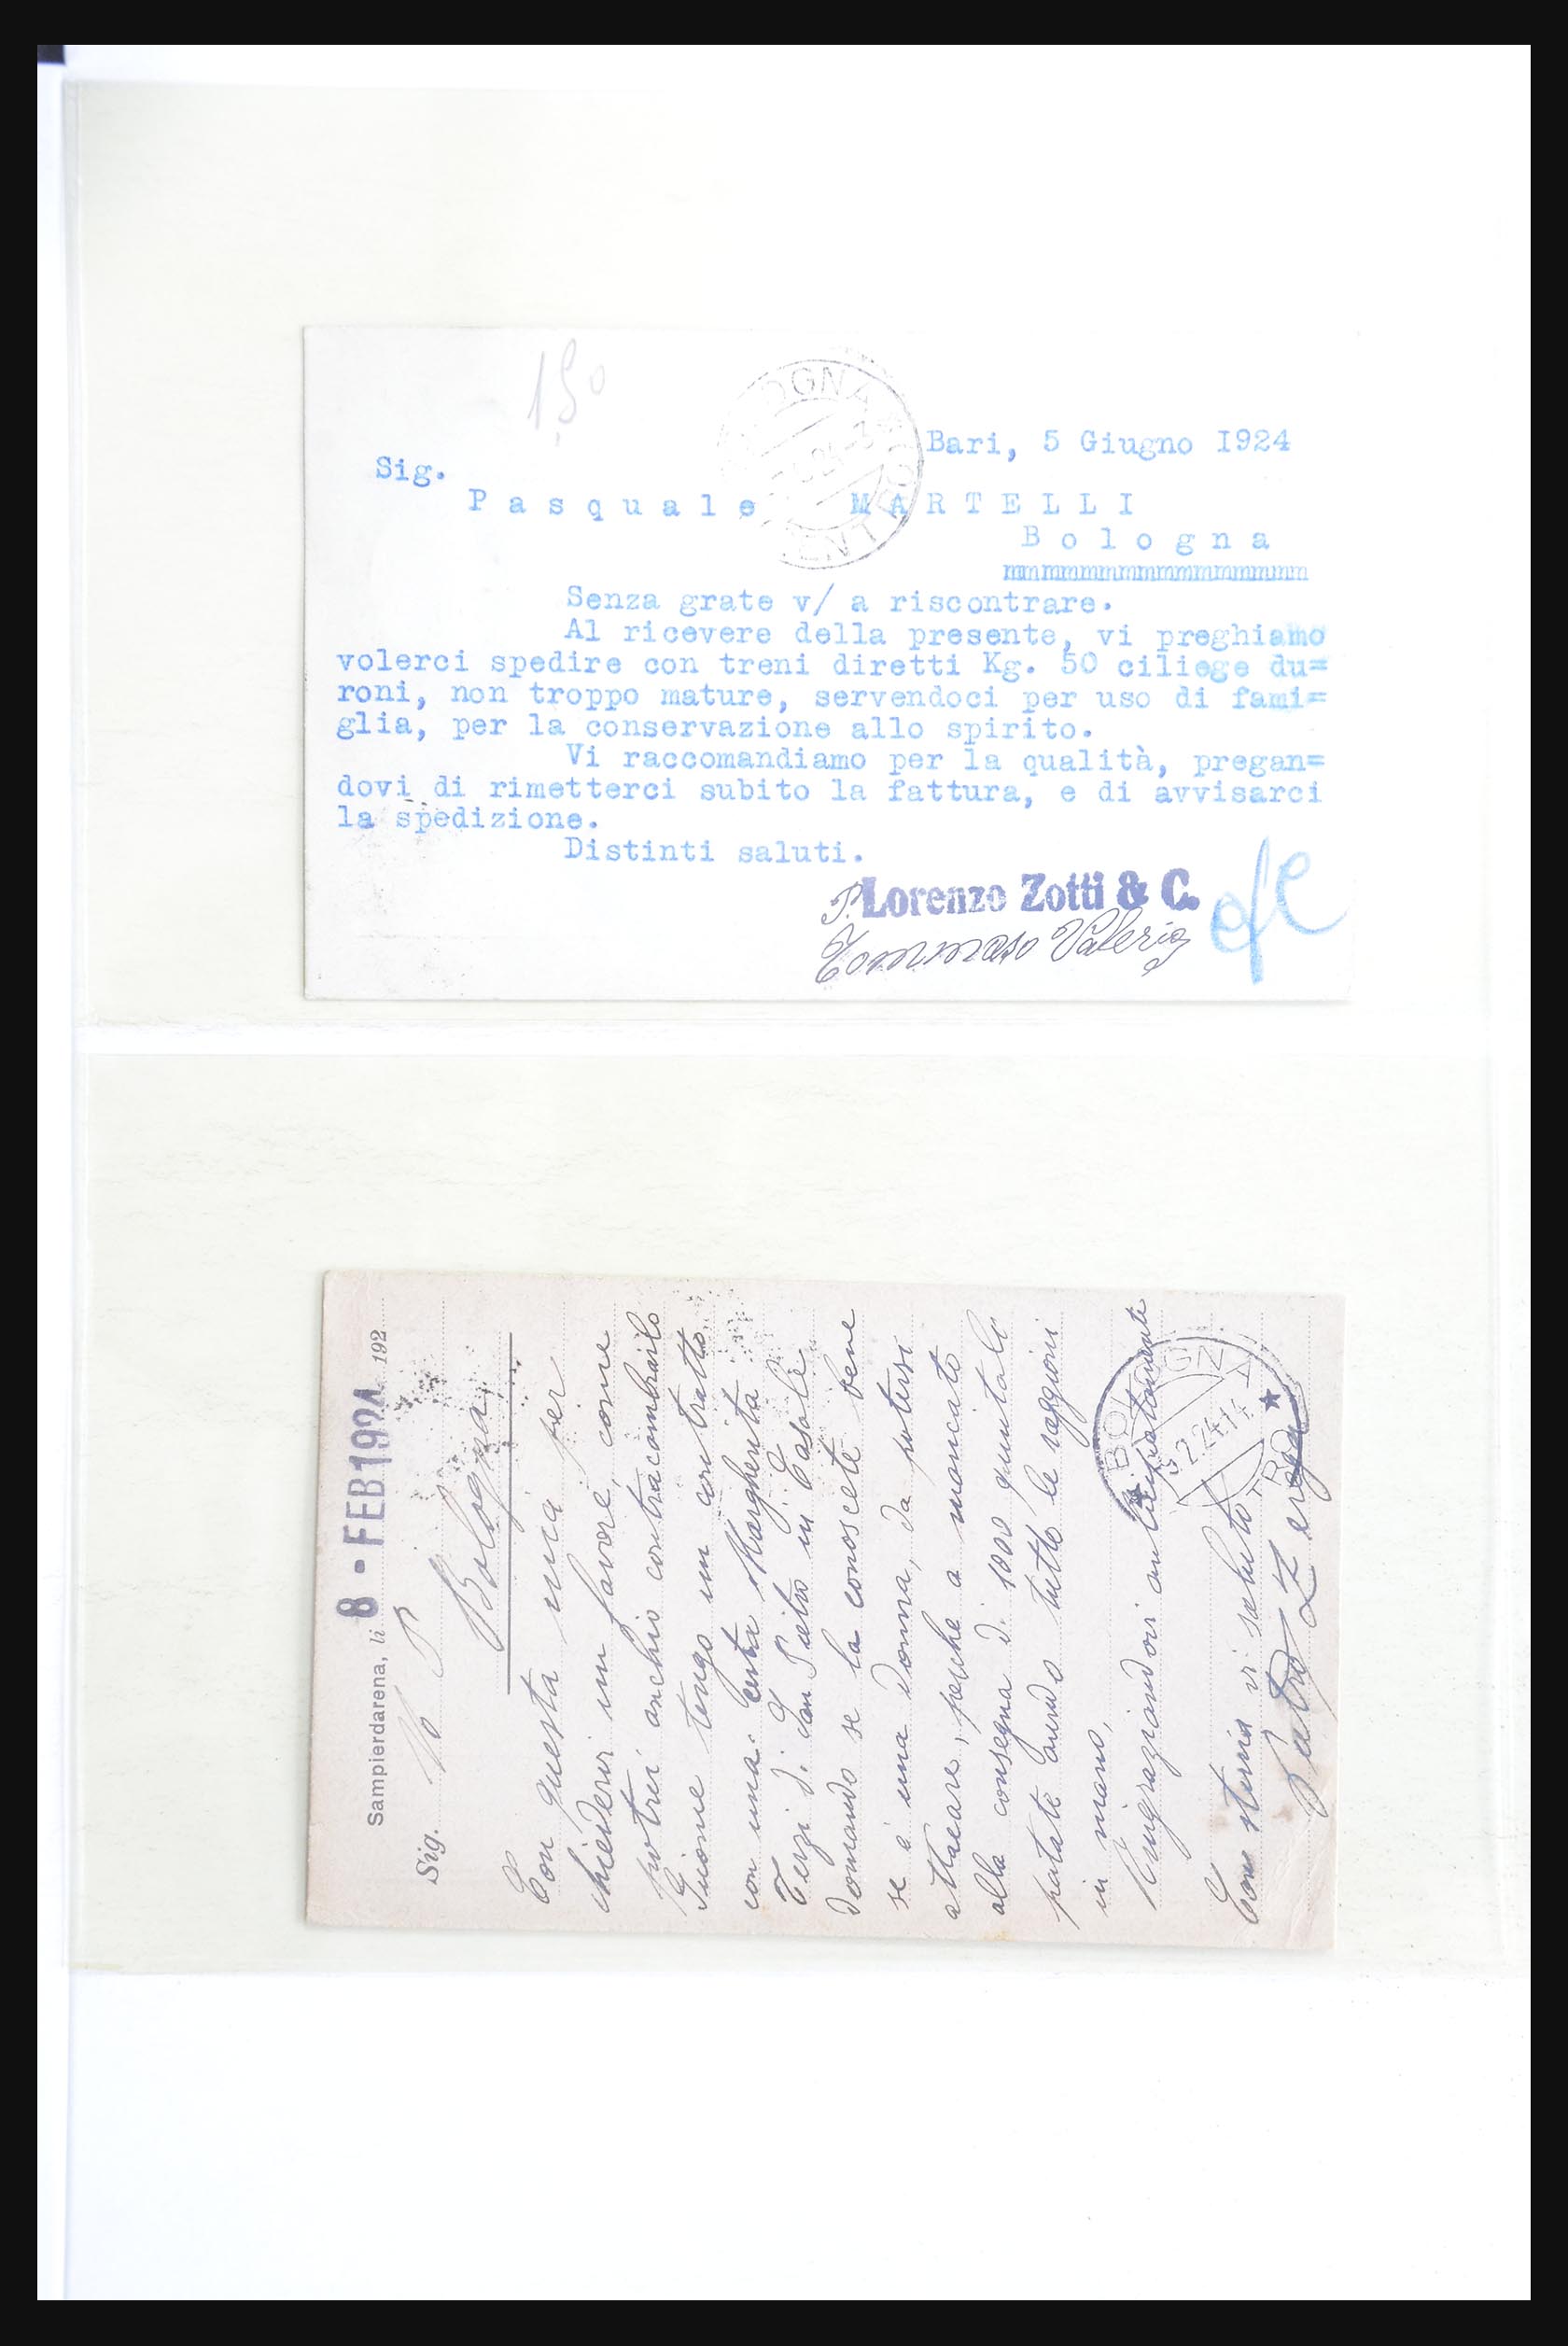 150
BOLOGNA
Bari, 5 Giugno 1924
Sig.
Pasquale MARTELLI
Bologna
mmmmmmmmmmmmmmmmm
Senza grate v/ a riscontrare.
Al ricevere della presente, vi preghiamo
volerci spedire con treni diretti Kg. 50 ciliege du=
roni, non troppo mature, servendoci per uso di fami=
glia, per la conservazione allo spirito.
Vi raccomandiamo per la qualità, pregan=
dovi di rimetterci subito la fattura, e di avvisarci
la spedizione.
Distinti saluti.
P. Lorenzo Zotti & C.
Tommaso Valerio
Sampierdarena, li 8 - FEB 1924 192
Sig.
Bologna
Con questa mia per
chiedervi un favore, come
potrei anchio contracambiarlo
tengo un contratto
con una certa Margherita
Terzi di San Pietro in Casale
domando se la conoscete bene
se è una donna, da potersi
attacare, perche a mancato
alla consegna di 1000 quintali
patate avendo tutte le raggioni
in mano,
Ringraziandovi anticipatamente
Con stima vi saluto
Pietro Zerega
BOLOGNA